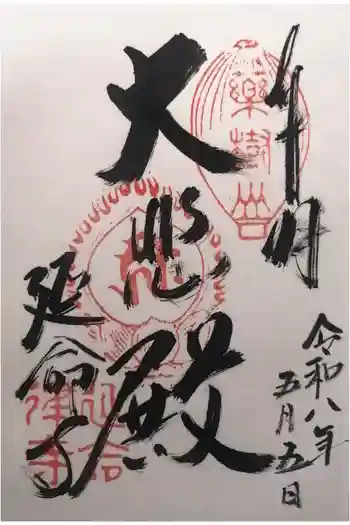 奉拝
令和八年
五月五日
大悲殿
延命寺
樂樹山